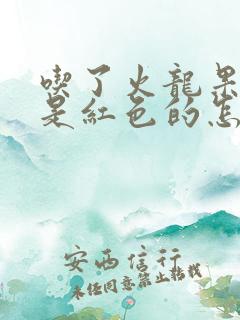 喫了火龍果
是紅色的怎
安西信行
未任同意禁止转载